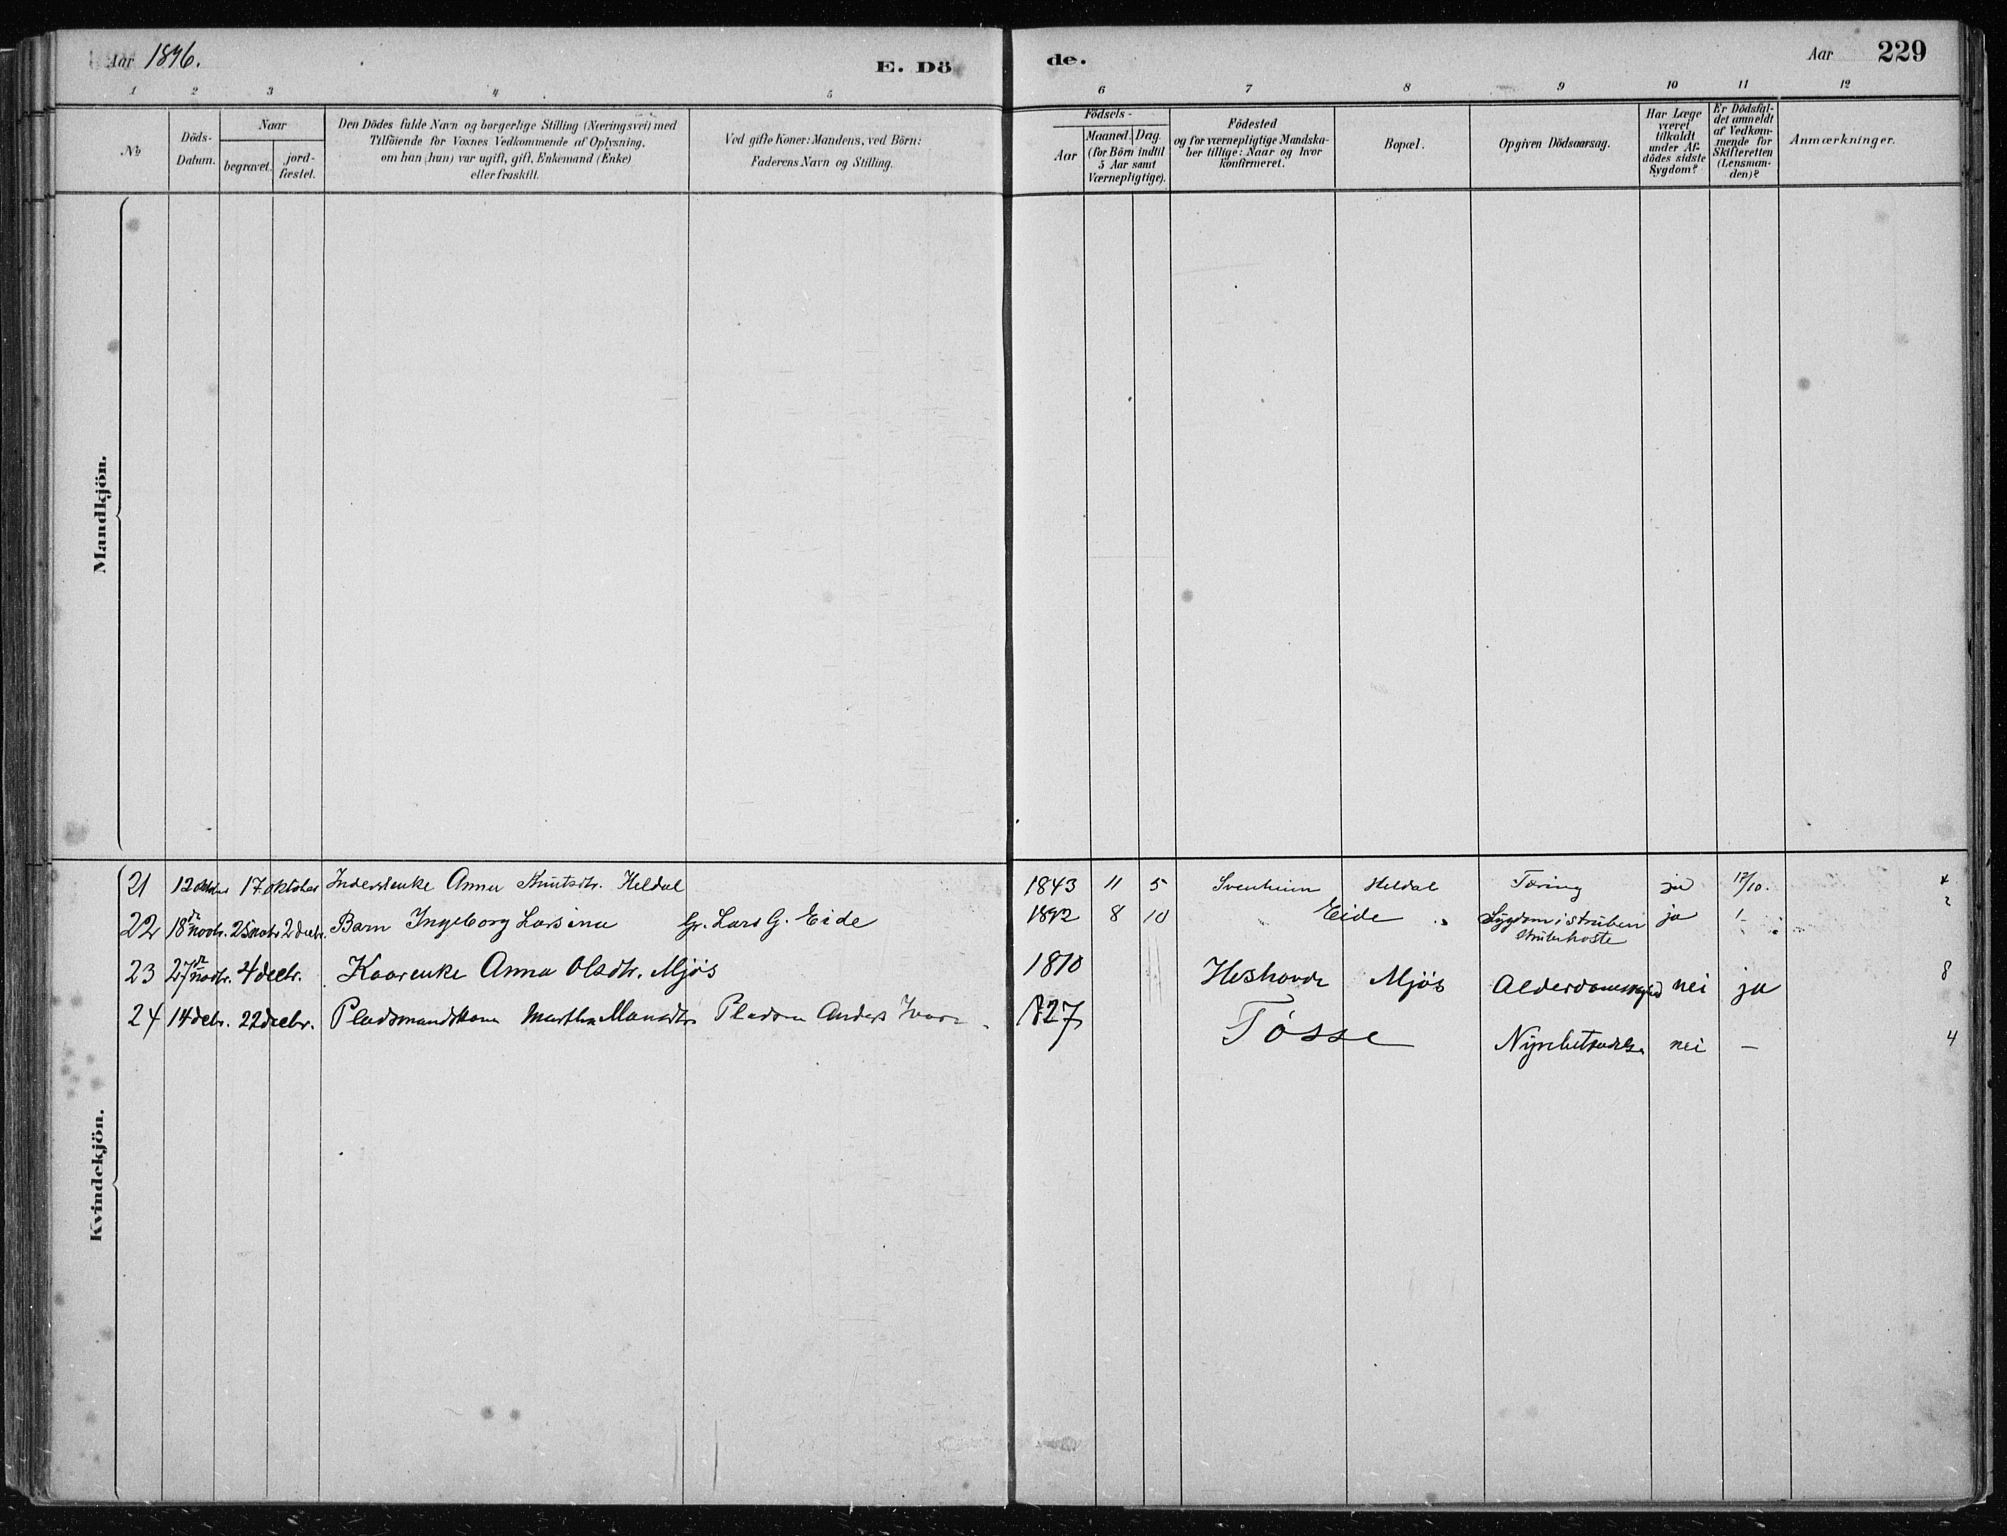 Aar 1896. E. Dö de. Aar 229
1 2 3 4 5 6 7 8 9 10 11 12
No
Döds-
Datum.
Naar
begravet. jord-
fæstet.
Den Dödes fulde Navn og borgerlige Stilling (Næringsvei) med
Tilföiende for Voxnes Vedkommende af Oplysning,
om han (hun) var ugift, gift, Enkemand (Enke)
eller fraskilt.
Ved gifte Koner: Mandens, ved Börn:
Faderens Navn og Stilling.
Födsels-
Aar
Maaned. Dag.
(for Börn indtil
5 Aar samt
Værnepligtige).
Födested
og for værnepligtige Mandska-
ber tillige: Naar og hvor
konfirmeret.
Bopæl.
Opgiven Dödsaarsag.
Har Læge
været
tilkaldt
under Af-
dödes sidste
Sygdom?
Er Dödsfal-
det anmeldt
af Vedkom-
mende for
Skifteretten
(Lensman-
den)?
Anmærkninger.
Mandkjön.
Kvindekjön.
21 12 oktober 17 oktober Anna Knutsdtr. Heldal 1843 11 5 Svenheim Heldal Tæring ja 17/10.
22 18de novbr. 25 novbr 2 decbr. Barn Ingeborg Larsina Gr. Lars G. Eide 1892 8 10 Eide " Sygdom i struben ja 1-
strubehoste
23 27de novbr. 4 decbr. Kaarenke Anna Olsdtr. Mjøs 1810 Heshovde Mjøs Alderdomssvaghed nei ja 8
24 14 decbr. 22 decbr. Pladsmandskone Martha Monsdtr Pladsm Anders 1827 Tøsse Nyrebetændelse nei — 4